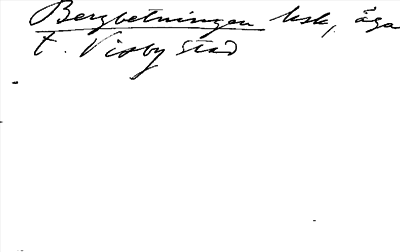 Bergbetningen hsk, äga
t. Visby stad